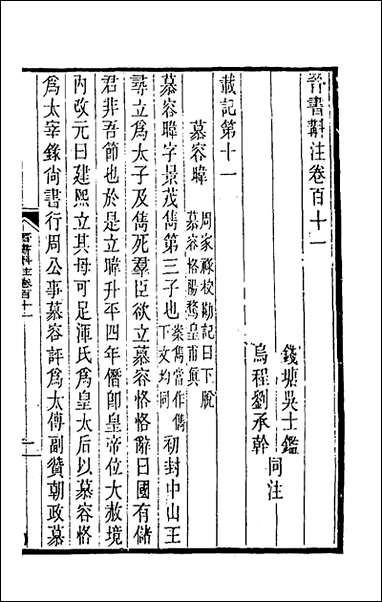 晉書斠注卷百十一
錢塘吳士鑑
烏程劉承幹
同注
載記第十一
慕容暐
周家祿校勘記曰下脫
慕容恪陽騖皇甫真
慕容暐字景茂儁第三子也
案儁當作儁
下文均同
初封中山王
尋立爲太子及儁死羣臣欲立慕容恪恪辭曰國有儲
君非吾節也於是立暐升平四年僭卽皇帝位大赦境
內改元曰建熙立其母可足渾氏爲皇太后以慕容恪
爲太宰錄尚書行周公事慕容評爲太傅副贊朝政慕
晉書斠注卷百十一
一